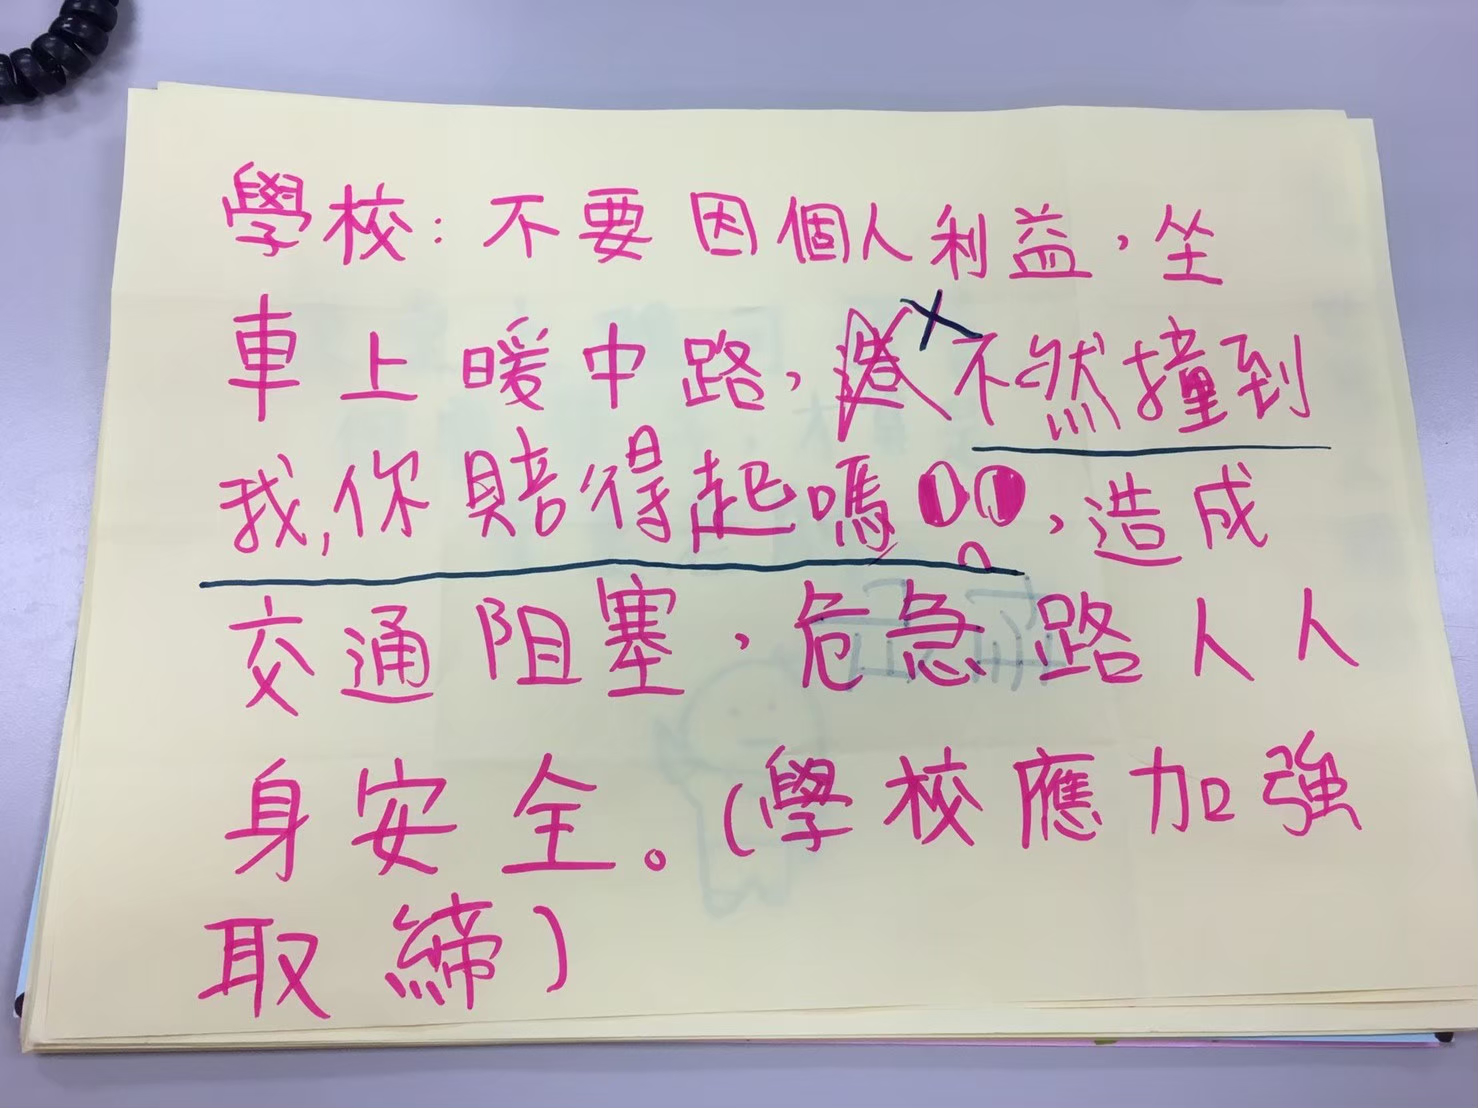 學校：不要因個人利益，坐
車上暖中路，不然撞到
我，你賠得起嗎，造成
交通阻塞，危急路人人
身安全。（學校應加強
取締）